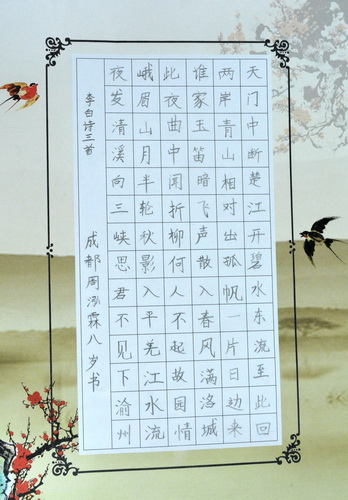 天门中断楚江开碧水东流至此回
两岸青山相对出孤帆一片日边来
谁家玉笛暗飞声散入春风满洛城
此夜曲中闻折柳何人不起故园情
峨眉山月半轮秋影入平羌江水流
夜发清溪向三峡思君不见下渝州
李白诗三首
成都周泓霖八岁书